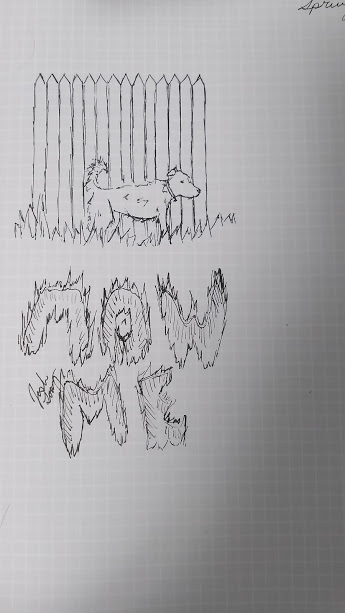 Sprin
MOW
ME